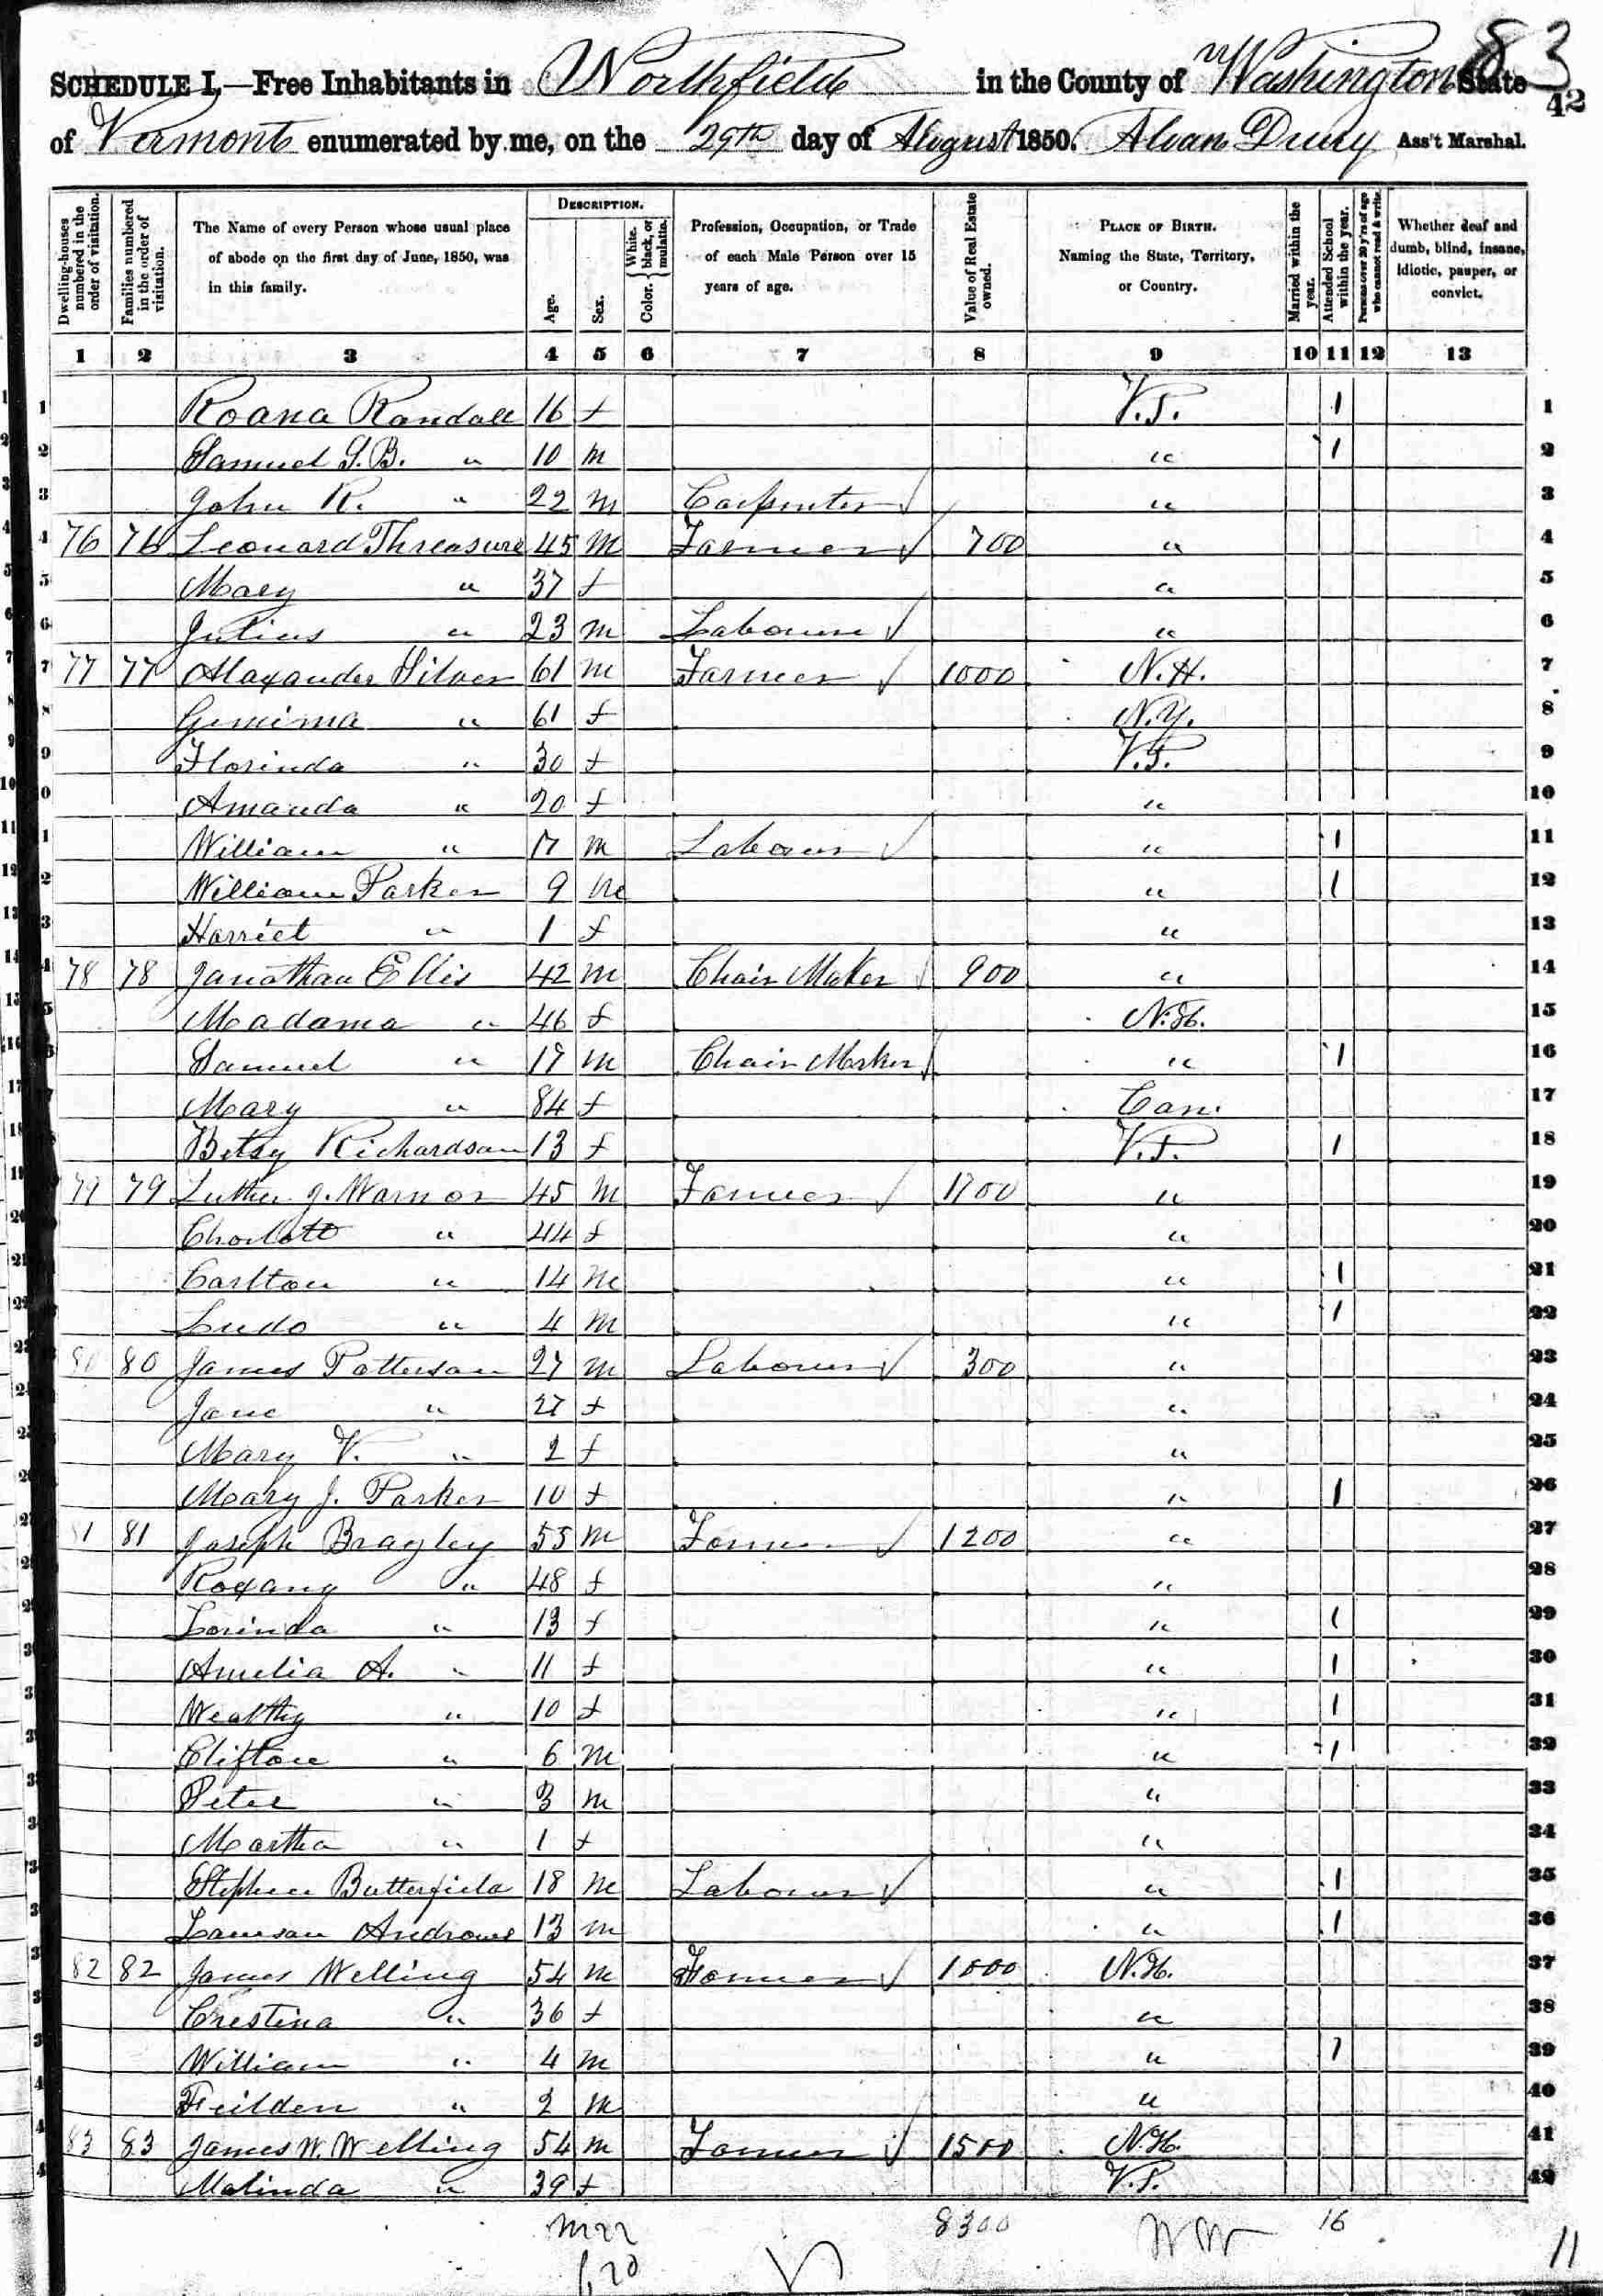 83
SCHEDULE I.—Free Inhabitants in Northfield in the County of Washington State
42
of Vermont enumerated by me, on the 29th day of August 1850. Alvan Drury Ass't Marshal.
Dwelling-houses numbered in the order of visitation. Families numbered in the order of visitation. The Name of every Person whose usual place of abode on the first day of June, 1850, was in this family. DESCRIPTION. Age. Sex. Color. { White, black, or mulatto. Profession, Occupation, or Trade of each Male Person over 15 years of age. Value of Real Estate owned. PLACE OF BIRTH. Naming the State, Territory, or Country. Married within the year. Attended School within the year. Persons over 20 y'rs of age who cannot read & write. Whether deaf and dumb, blind, insane, idiotic, pauper, or convict.
1 2 3 4 5 6 7 8 9 10 11 12 13
1 Roana Randall 16 f V.T. 1 1
2 Samuel S.B. " 10 m " 1 2
3 John R. " 22 m Carpenter " 3
4 76 76 Leonard Threasure 45 m Farmer 700 " 4
5 Mary " 37 f " 5
6 Julius " 23 m Labourer " 6
7 77 77 Alaxander Silver 61 m Farmer 1000 N.H. 7
8 Gemima " 61 f N.Y. 8
9 Florinda " 30 f V.T. 9
10 Amanda " 20 f " 10
11 William " 17 m Labourer " 1 11
12 William Parker 9 m " 1 12
13 Harriet " 1 f " 13
14 78 78 Janathan Ellis 42 m Chair Maker 900 " 14
15 Madama " 46 f N.H. 15
16 Samuel " 17 m Chair Maker " 1 16
17 Mary " 84 f Can. 17
18 Betsy Richardson 13 f V.T. 1 18
19 79 79 Luther J. Warner 45 m Farmer 1700 " 19
20 Charlott " 44 f " 20
21 Carlton " 14 m " 1 21
22 Ludo " 4 m " 1 22
23 80 80 James Patterson 27 m Labourer 300 " 23
24 Jane " 27 f " 24
25 Mary V. " 2 f " 25
26 Mary J. Parker 10 f " 1 26
27 81 81 Joseph Bragley 55 m Farmer 1200 " 27
28 Roxany " 48 f " 28
29 Lorinda " 13 f " 1 29
30 Amelia A. " 11 f " 1 30
31 Wealthy " 10 f " 1 31
32 Clifton " 6 m " 1 32
33 Peter " 3 m " 33
34 Martha " 1 f " 34
35 Stephen Butterfield 18 m Labourer " 1 35
36 Lamson Andrews 13 m " 1 36
37 82 82 James Welling 54 m Farmer 1000 N.H. 37
38 Crestina " 36 f " 38
39 William " 4 m " 1 39
40 Feilden " 2 m " 40
41 83 83 James W. Welling 54 m Farmer 1500 N.H. 41
42 Malinda " 39 f V.T. 42
m 22 8300 16
f 20 11